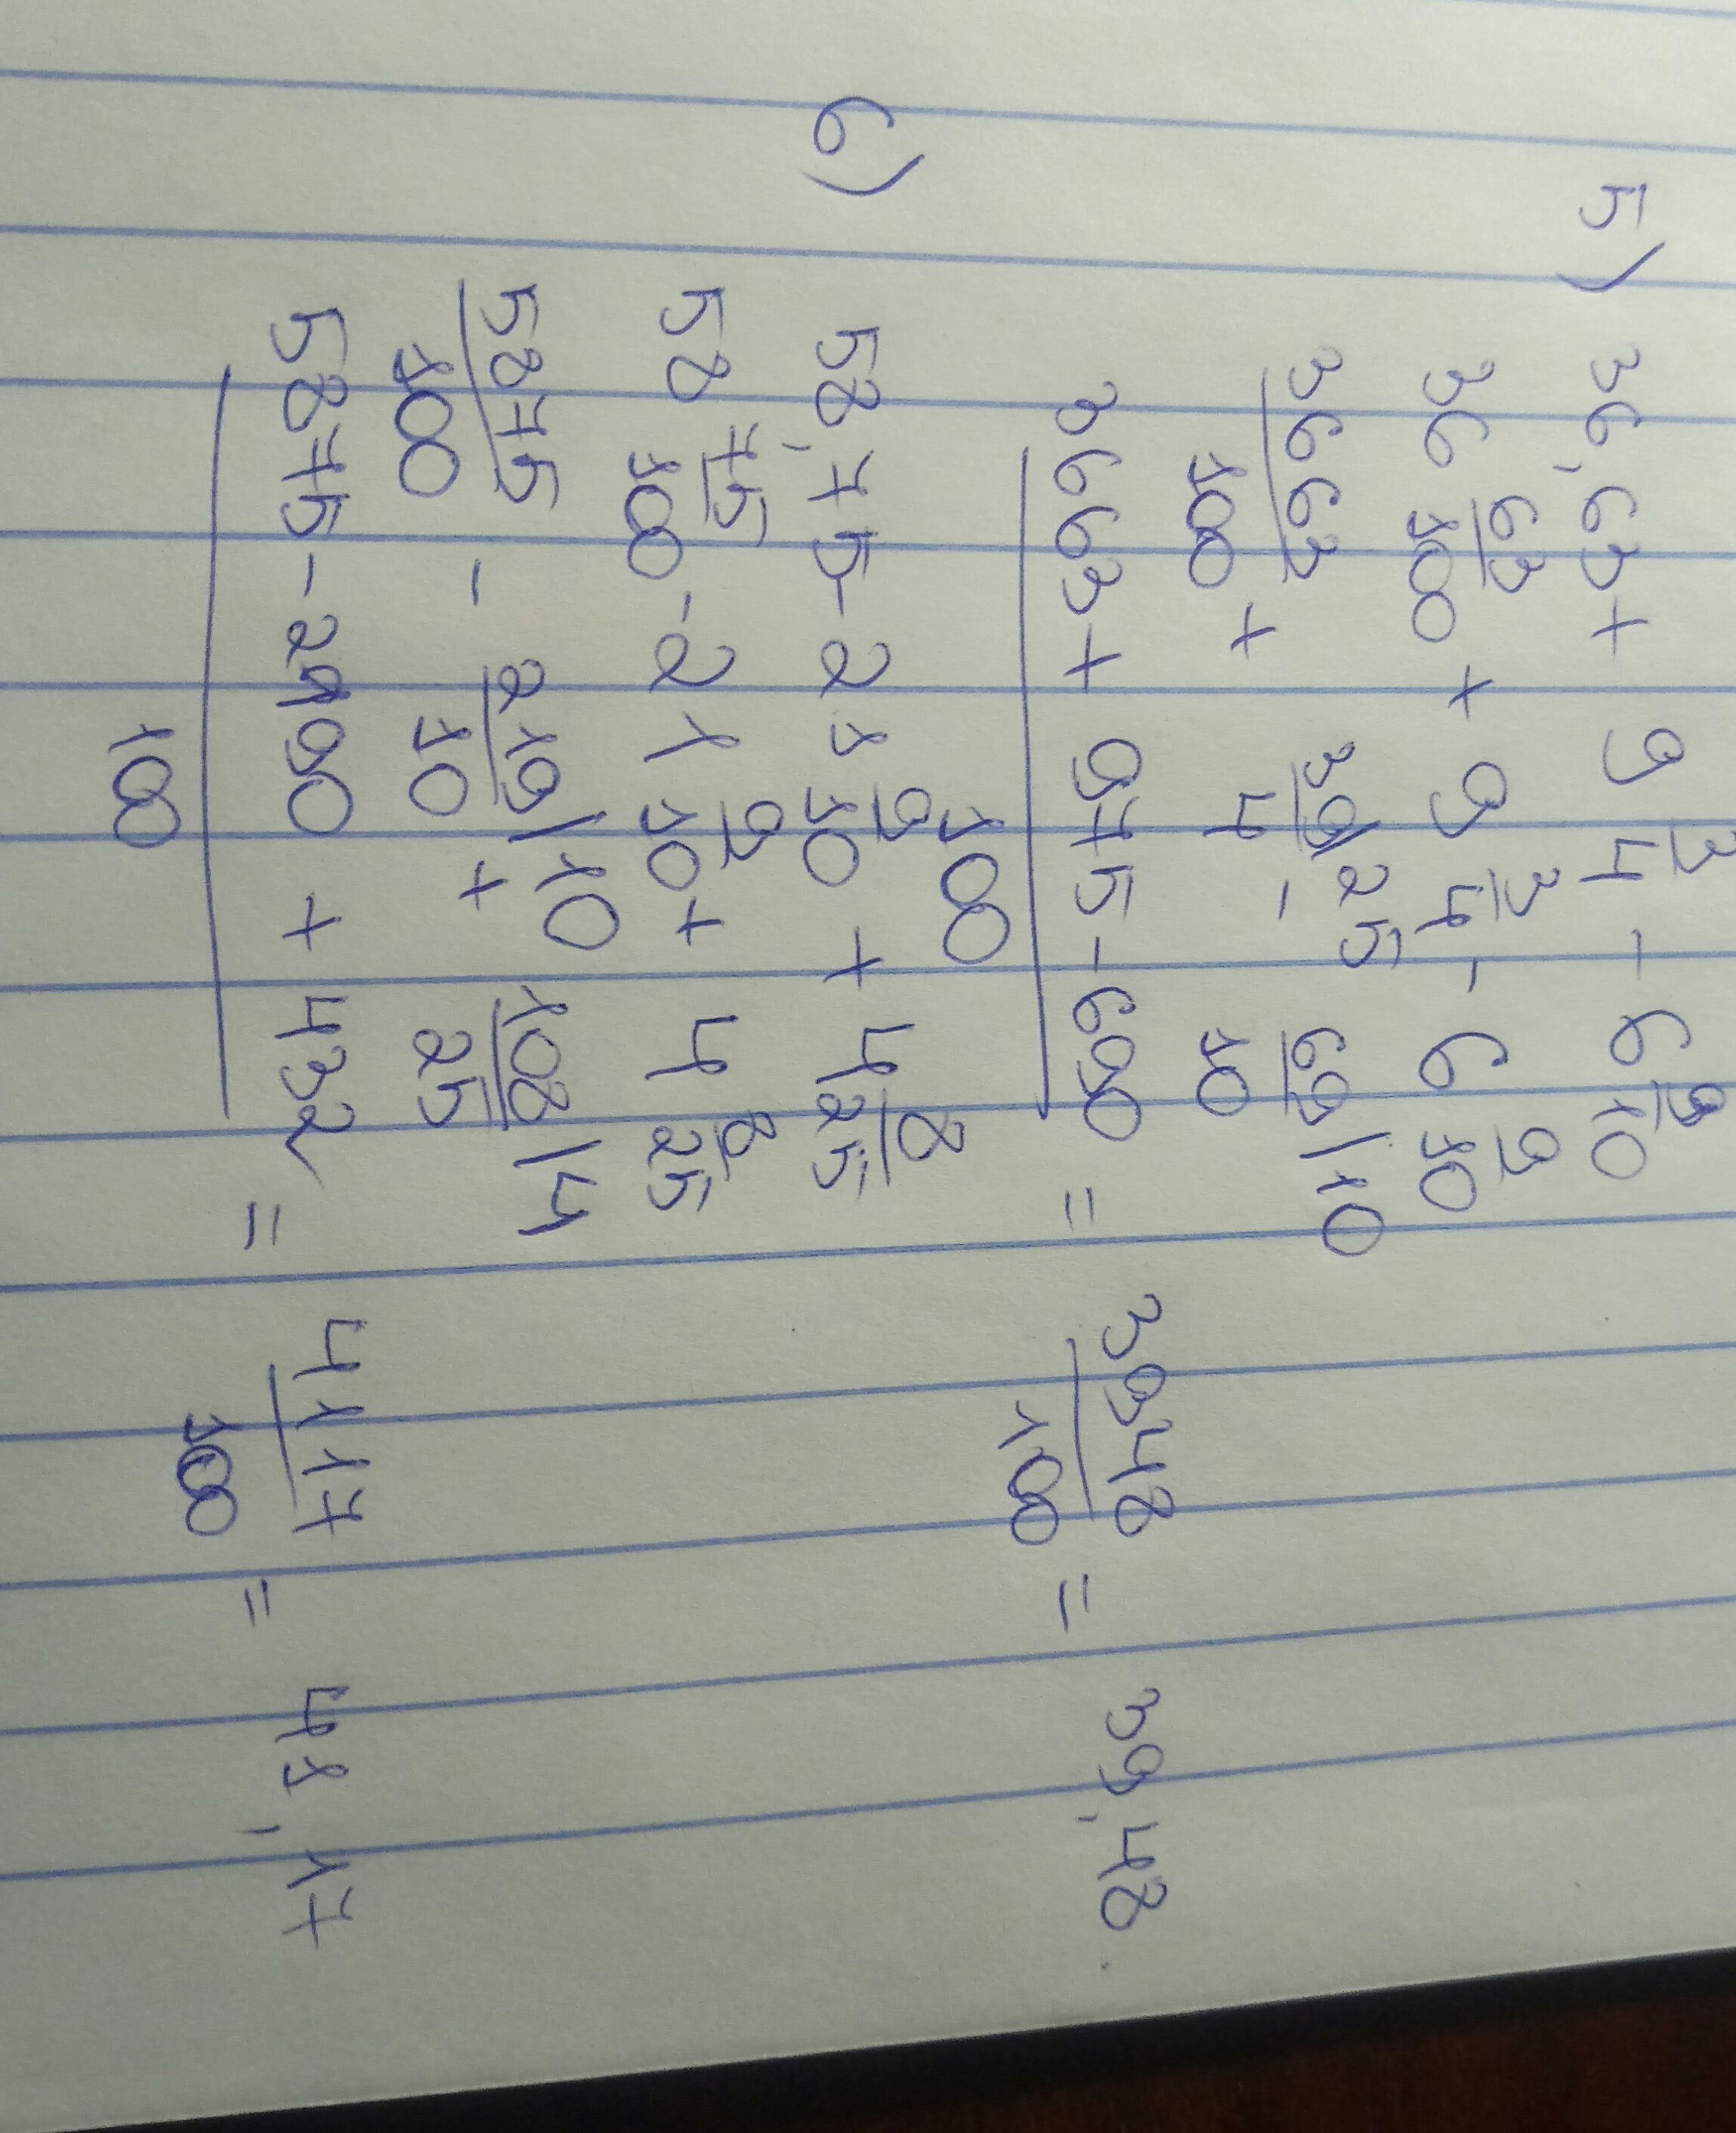 5) 36,63 + 9 3/4 - 6 9/10
36 63/100 + 9 3/4 - 6 9/10
3663/100 + 39/4 |25 - 69/10 |10
3663 + 975 - 690 / 100 = 3948/100 = 39,48
6) 58,75 - 21 9/10 + 4 8/25
58 75/100 - 21 9/10 + 4 8/25
5875/100 - 219/10 |10 + 108/25 |4
5875 - 2190 + 432 / 100 = 4117/100 = 41,17